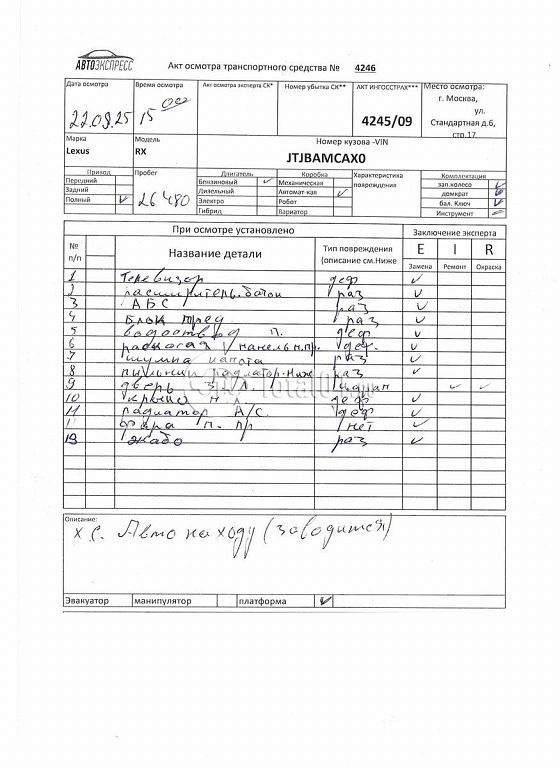 АВТОЭКСПРЕСС
Акт осмотра транспортного средства № 4246
Дата осмотра Время осмотра Акт осмотра эксперта СК* Номер убытка СК** АКТ ИНГОССТРАХ*** Место осмотра:
22.09.25 15 00 4245/09 г. Москва,
ул.
Стандартная д.6,
стр.17
Марка Модель Номер кузова -VIN
Lexus RX JTJBAMCAX0
Привод Пробег Двигатель Коробка Характеристика повреждения Комплектация
Передний 26480 Бензиновый ✓ Механическая зап.колесо ✓
Задний Дизельный Автомат-кая ✓ домкрат ✓
Полный ✓ Электро Робот бал. Ключ ✓
Гибрид Вариатор Инструмент
При осмотре установлено Заключение эксперта
№ п/п Название детали Тип повреждения (описание см.Ниже E I R
Замена Ремонт Окраска
1 Телевизор деф ✓
2 расширитель. бачок раз ✓
3 АБС раз ✓
4 Блок пред раз ✓
5 водоотвод п. деф ✓
6 панель н.пр. деф. ✓
7 шумка капота раз ✓
8 пыльник радиатор. Ниж раз ✓
9 дверь з/л ✓ ✓
10 крыло п. л. деф ✓
11 радиатор А/С. деф ✓
фара п. пр нет ✓
13 жабо раз ✓
Описание:
х.с. Авто на ходу (заводится)
Эвакуатор манипулятор платформа ✓